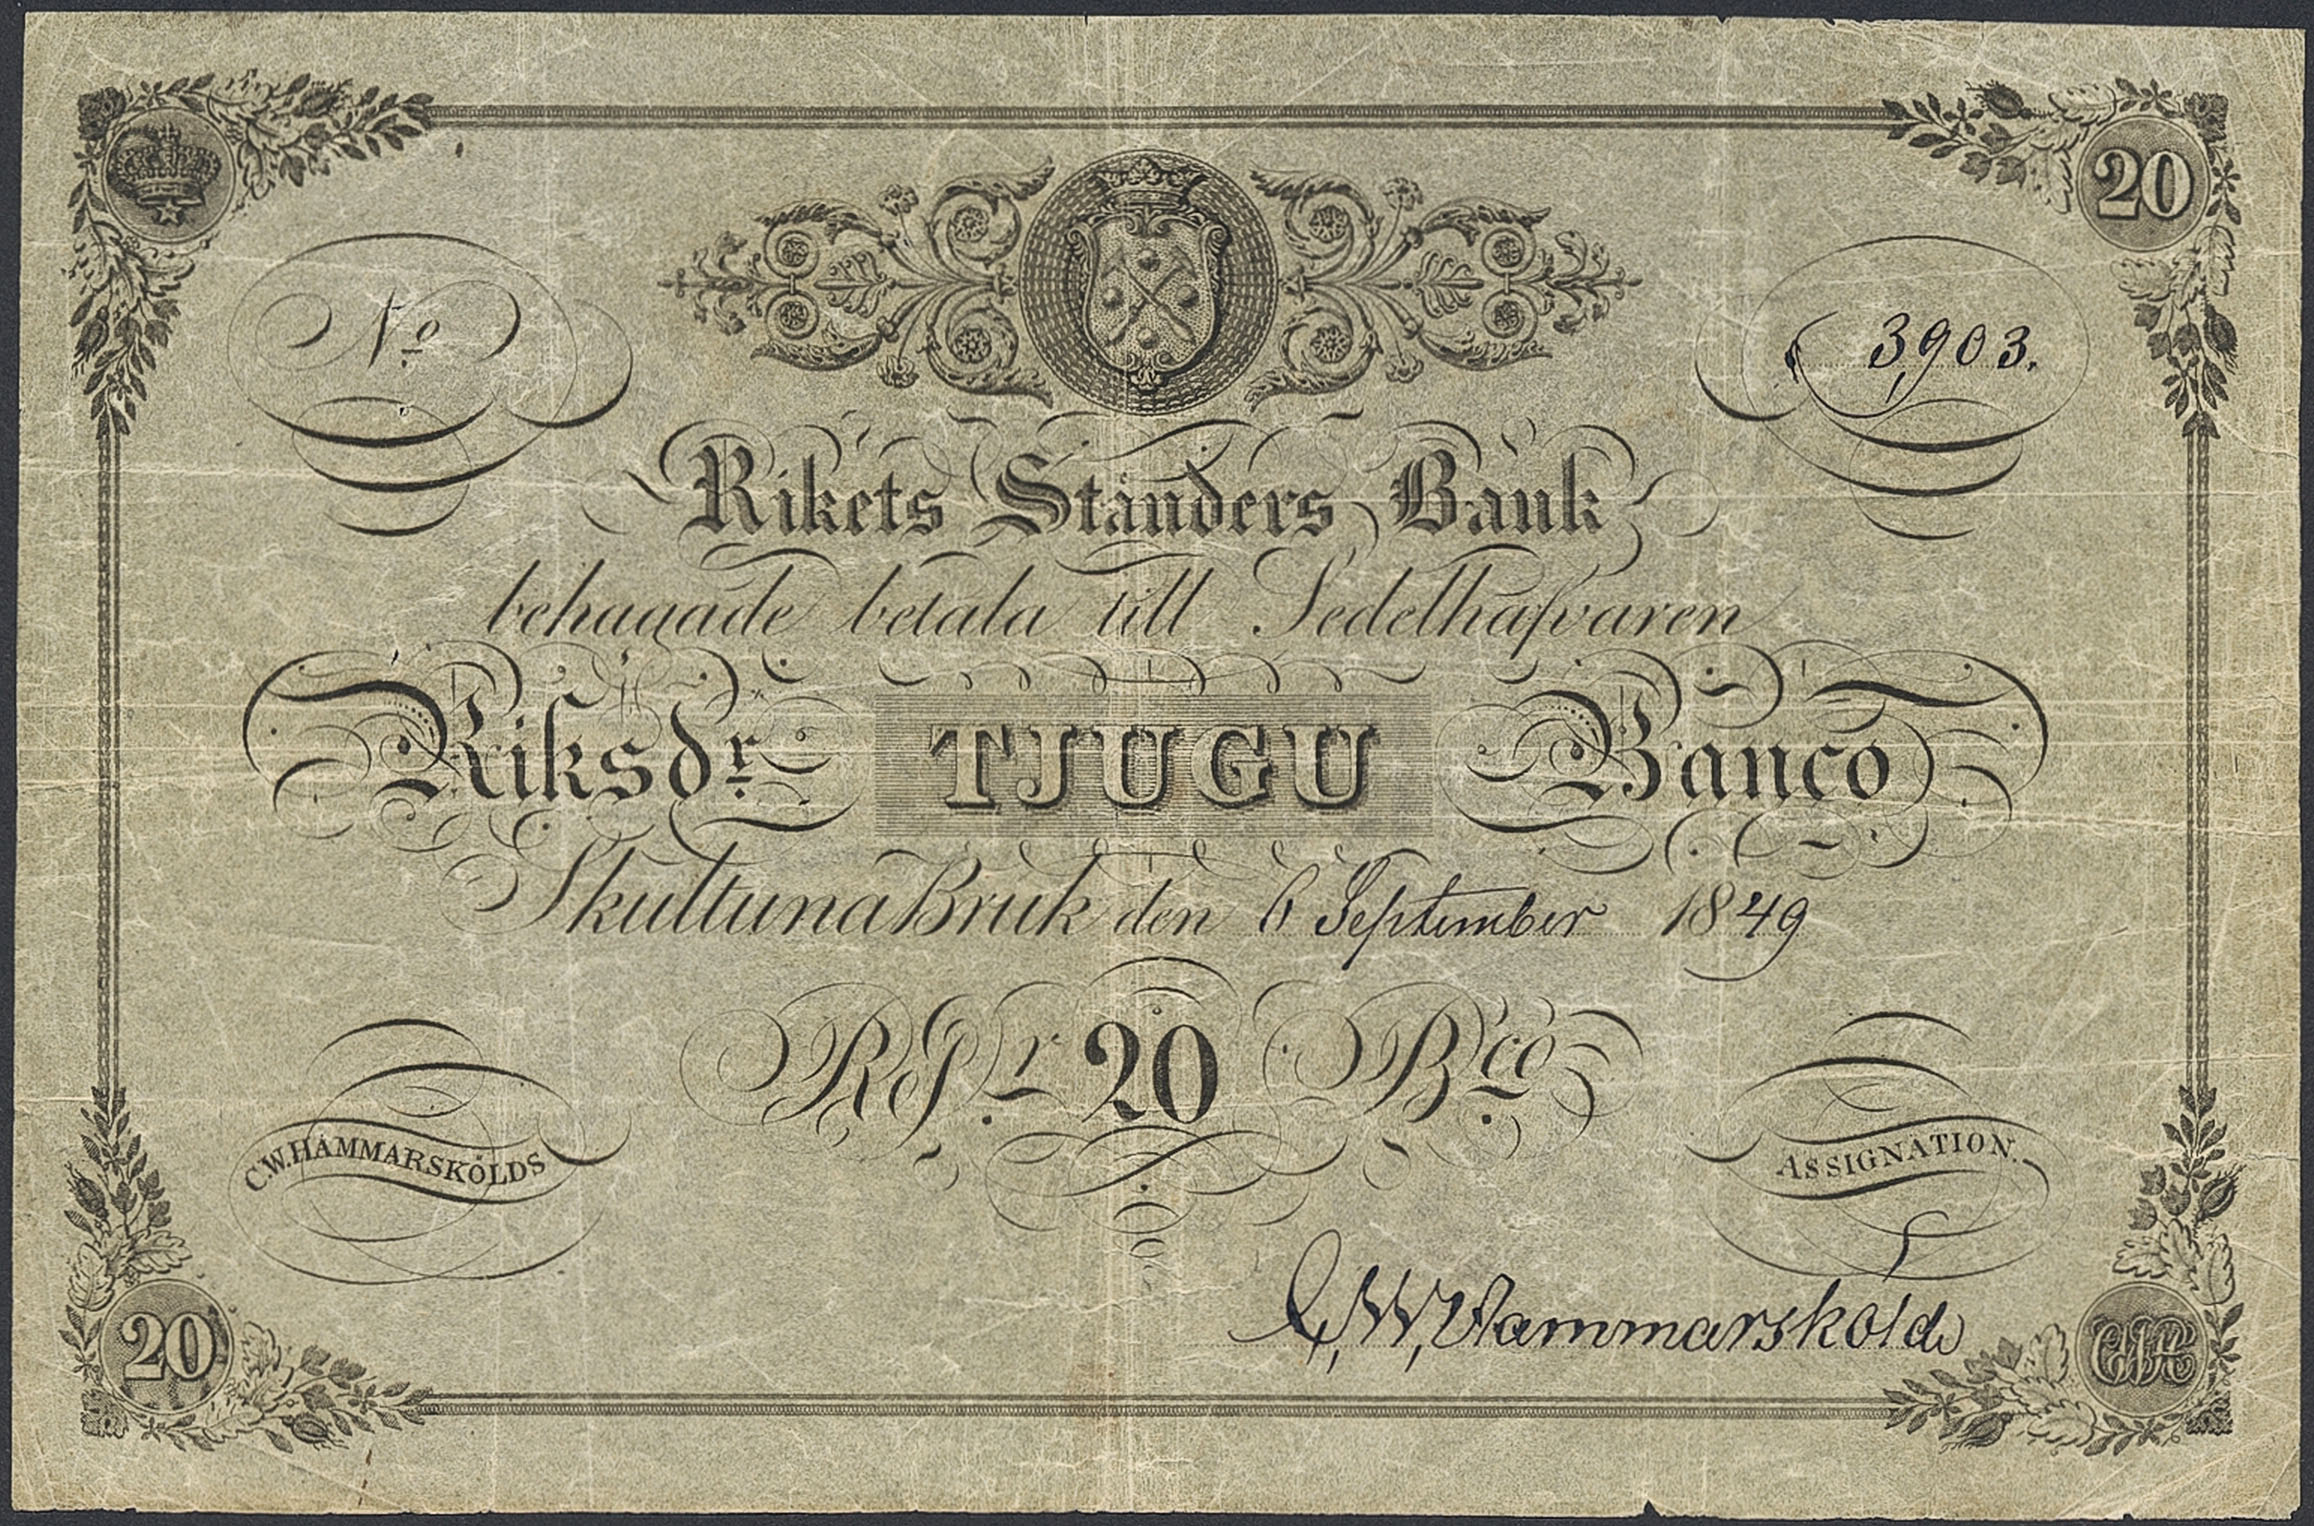 20
Nº 3,903.
Rikets Ständers Bank
behagade betala till Sedelhafvaren
Riksdr TJUGU Banco
Skultuna Bruk den 6 September 1849
RGr 20 Bco
C.W. HAMMARSKÖLDS ASSIGNATION.
C,W,Hammarsköld
20